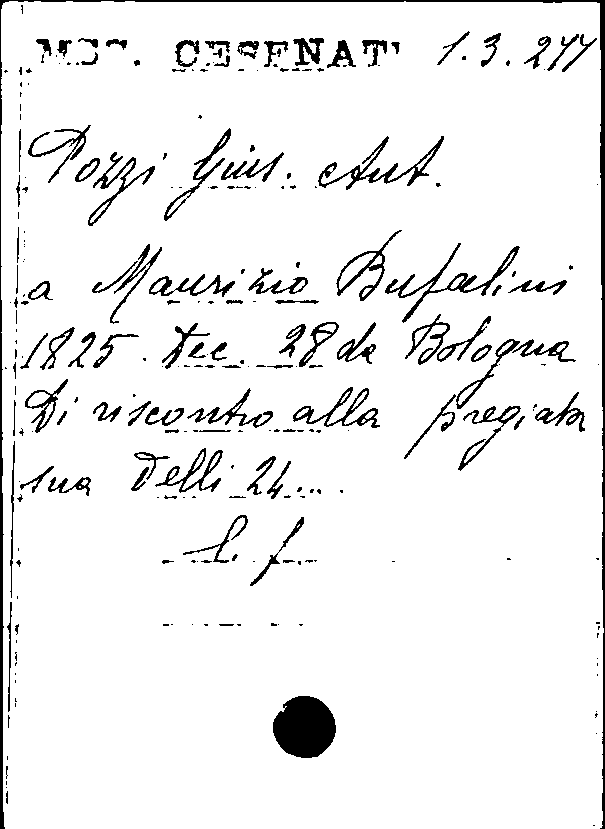 MSS. CESENATI 1.3.277
Pozzi Gius. Ant.
a Maurizio Bufalini
1825. Dec. 28 da Bologna
Di riscontro alla pregiata
sua delli 24...
L. f.